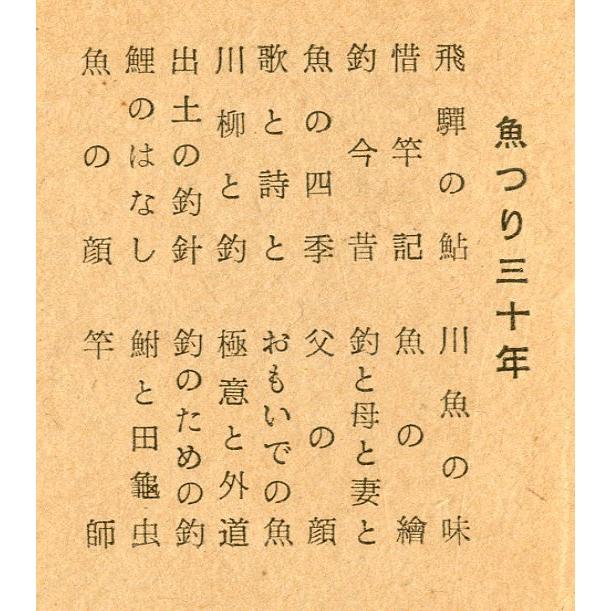 魚つり三十年
飛驒の鮎
惜竿記
釣今昔
魚の四季
歌と詩と
川柳と釣
出土の釣針
鯉のはなし
魚の顔
川魚の味
魚の繪
釣と母と妻と
父の顔
おもいでの魚
極意と外道
釣のための釣
鮒と田龜虫
竿師